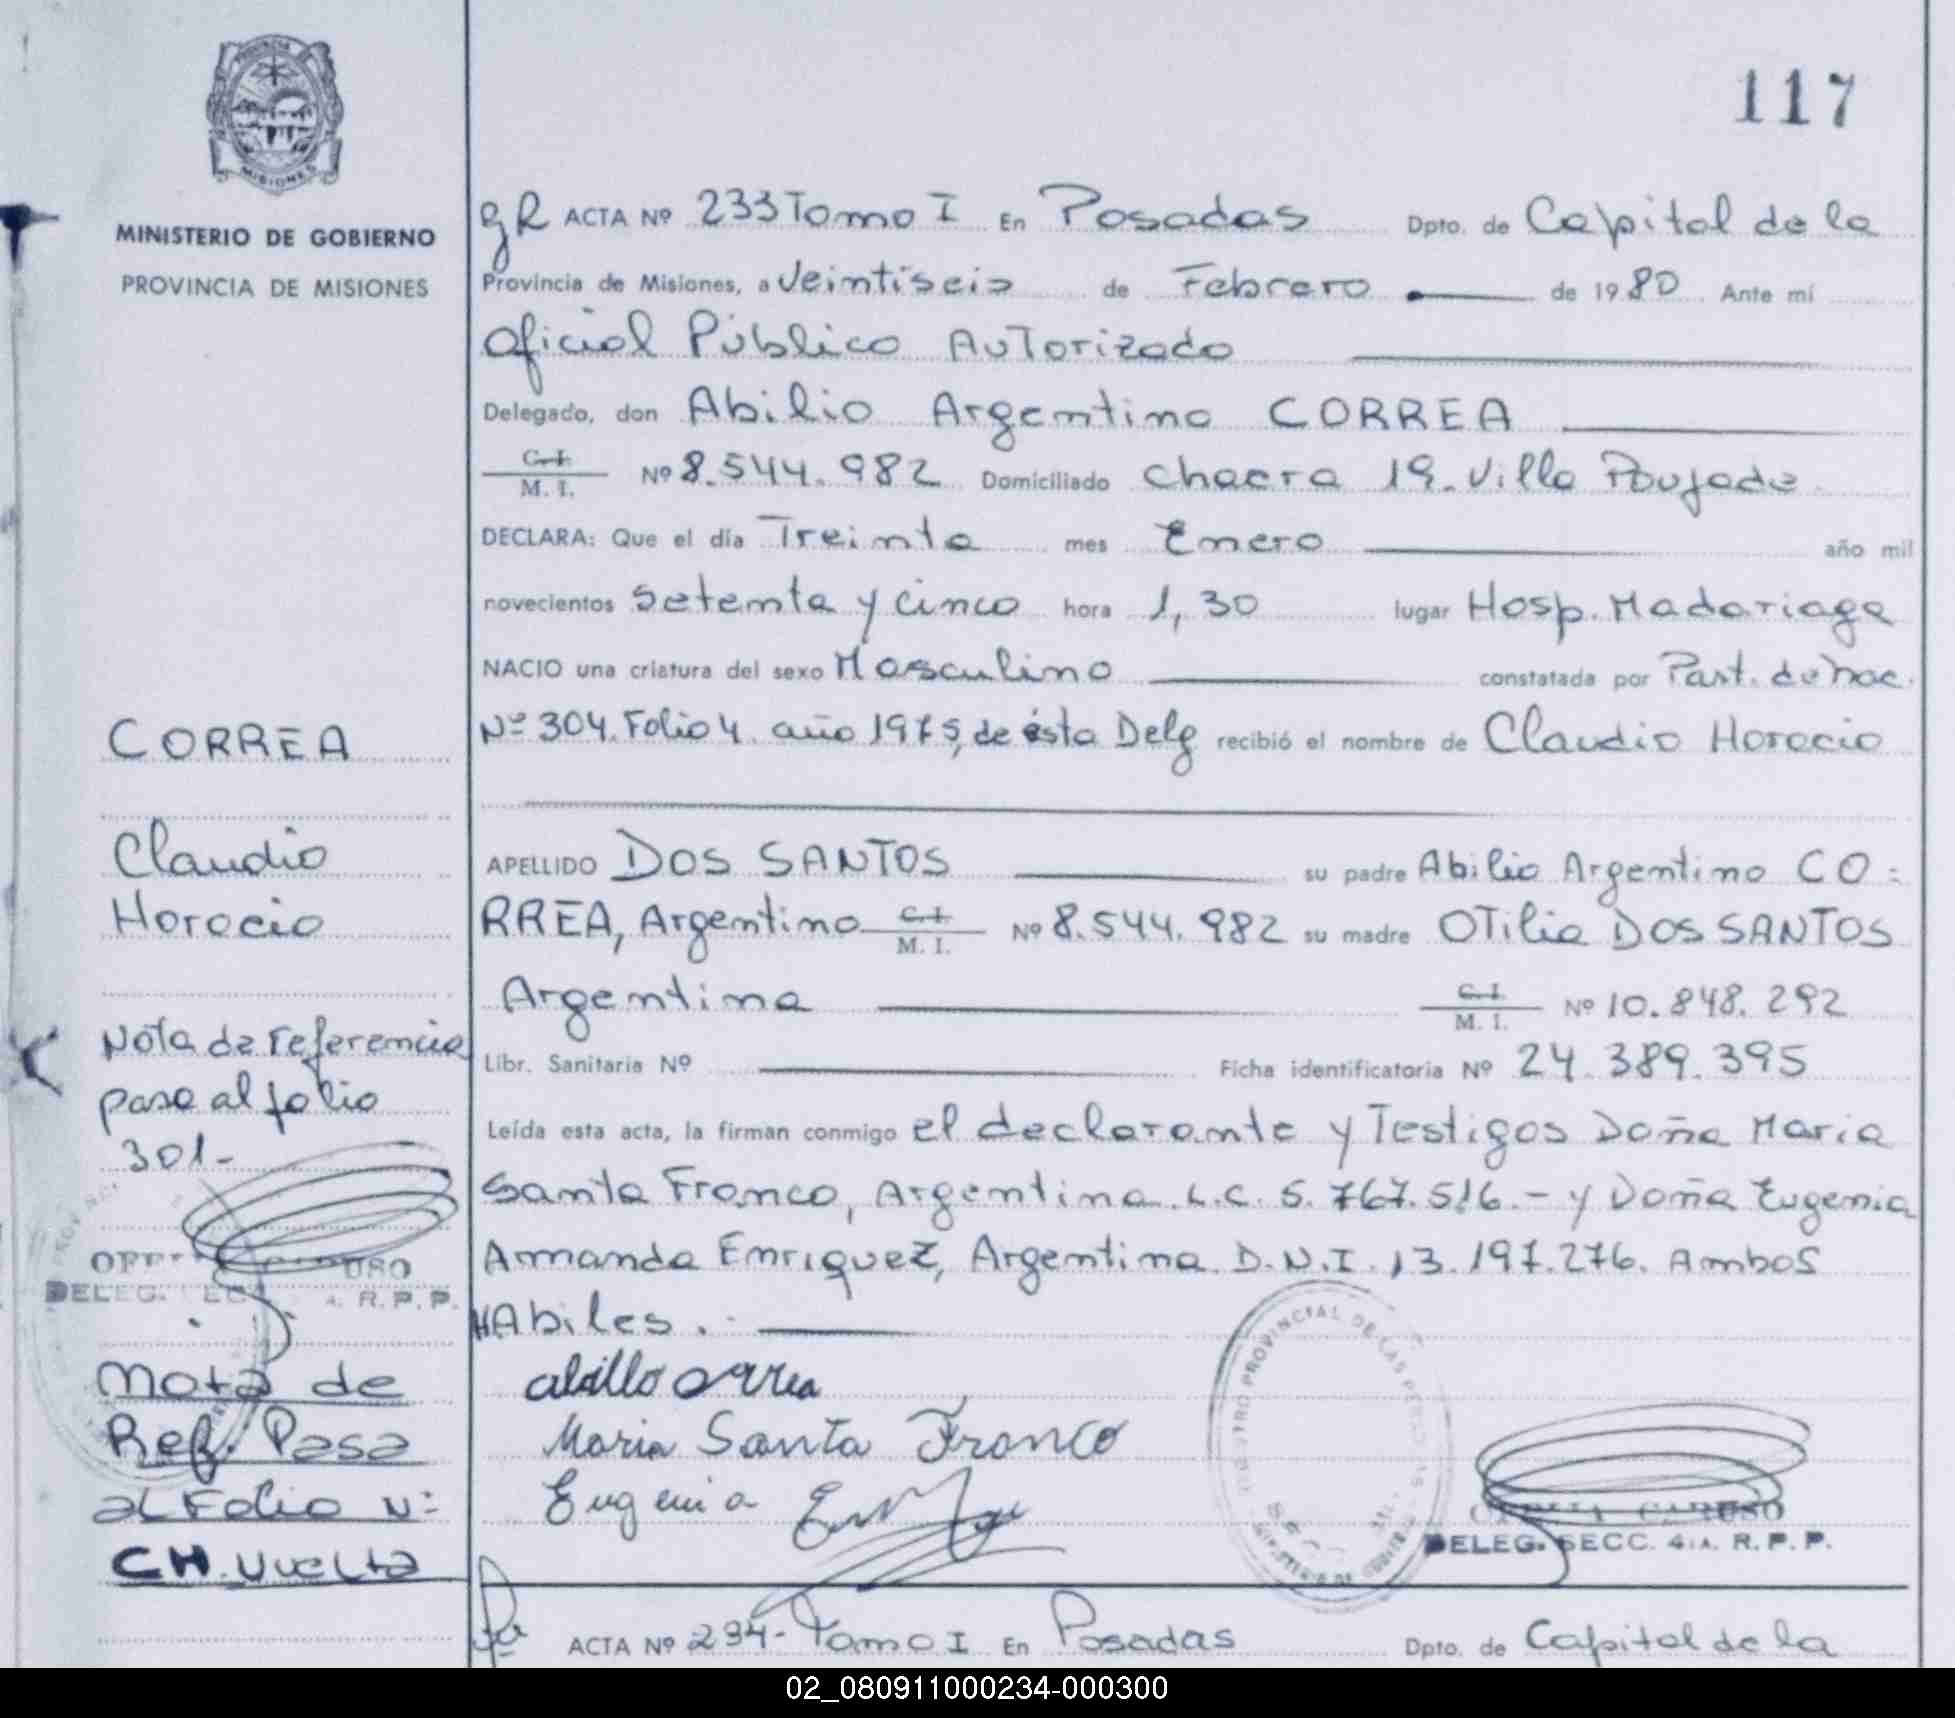 117
PROVINCIA
MISIONES
MINISTERIO DE GOBIERNO
PROVINCIA DE MISIONES
CORREA
Claudio
Horacio
Nota de referencia
pasa al folio
301-
DELEG. R.P.P.
Nota de
Ref. Pasa
al Folio N:
CH. Vuelta
gR ACTA Nº 233 Tomo I En Posadas Dpto. de Capital de la
Provincia de Misiones, a Veintiseis de Febrero de 1980 Ante mí
Oficial Público Autorizado
Delegado, don Abilio Argentino CORREA
C. I. M. I. Nº 8.544.982 Domiciliado Chacra 19. Villa Poujade
DECLARA: Que el día Treinta mes Enero año mil
novecientos setenta y cinco hora 1,30 lugar Hosp. Madariaga
NACIO una criatura del sexo Masculino constatada por Part. de nac.
Nº 304. Folio 4. año 1975, de ésta Delg recibió el nombre de Claudio Horacio
APELLIDO DOS SANTOS su padre Abilio Argentino CO=
RREA, Argentino C. I. M. I. Nº 8.544.982 su madre OTilia DOS SANTOS
Argentina C. I. M. I. Nº 10.848.292
Libr. Sanitaria Nº Ficha identificatoria Nº 24.389.395
Leída esta acta, la firman conmigo el declarante y Testigos Doña Maria
Santa Franco, Argentina. L.C. 5.767.516.- y Doña Eugenia
Armanda Enriquez, Argentina. D.N.I. 13.197.276. Ambos
HAbiles.-
abillo orrea
Maria Santa Franco
Eugenia
CARUSO
DELEG. SECC. 4:A. R.P.P.
ACTA Nº 234- Tomo I En Posadas Dpto. de Capital de la
02_080911000234-000300